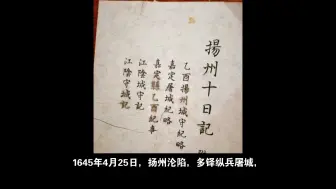 揚州十日記
乙酉揚州城守紀略
嘉定屠城紀略
嘉定縣乙酉紀事
江陰城守記
江陰守城記
1645年4月25日，扬州沦陷，多铎纵兵屠城，